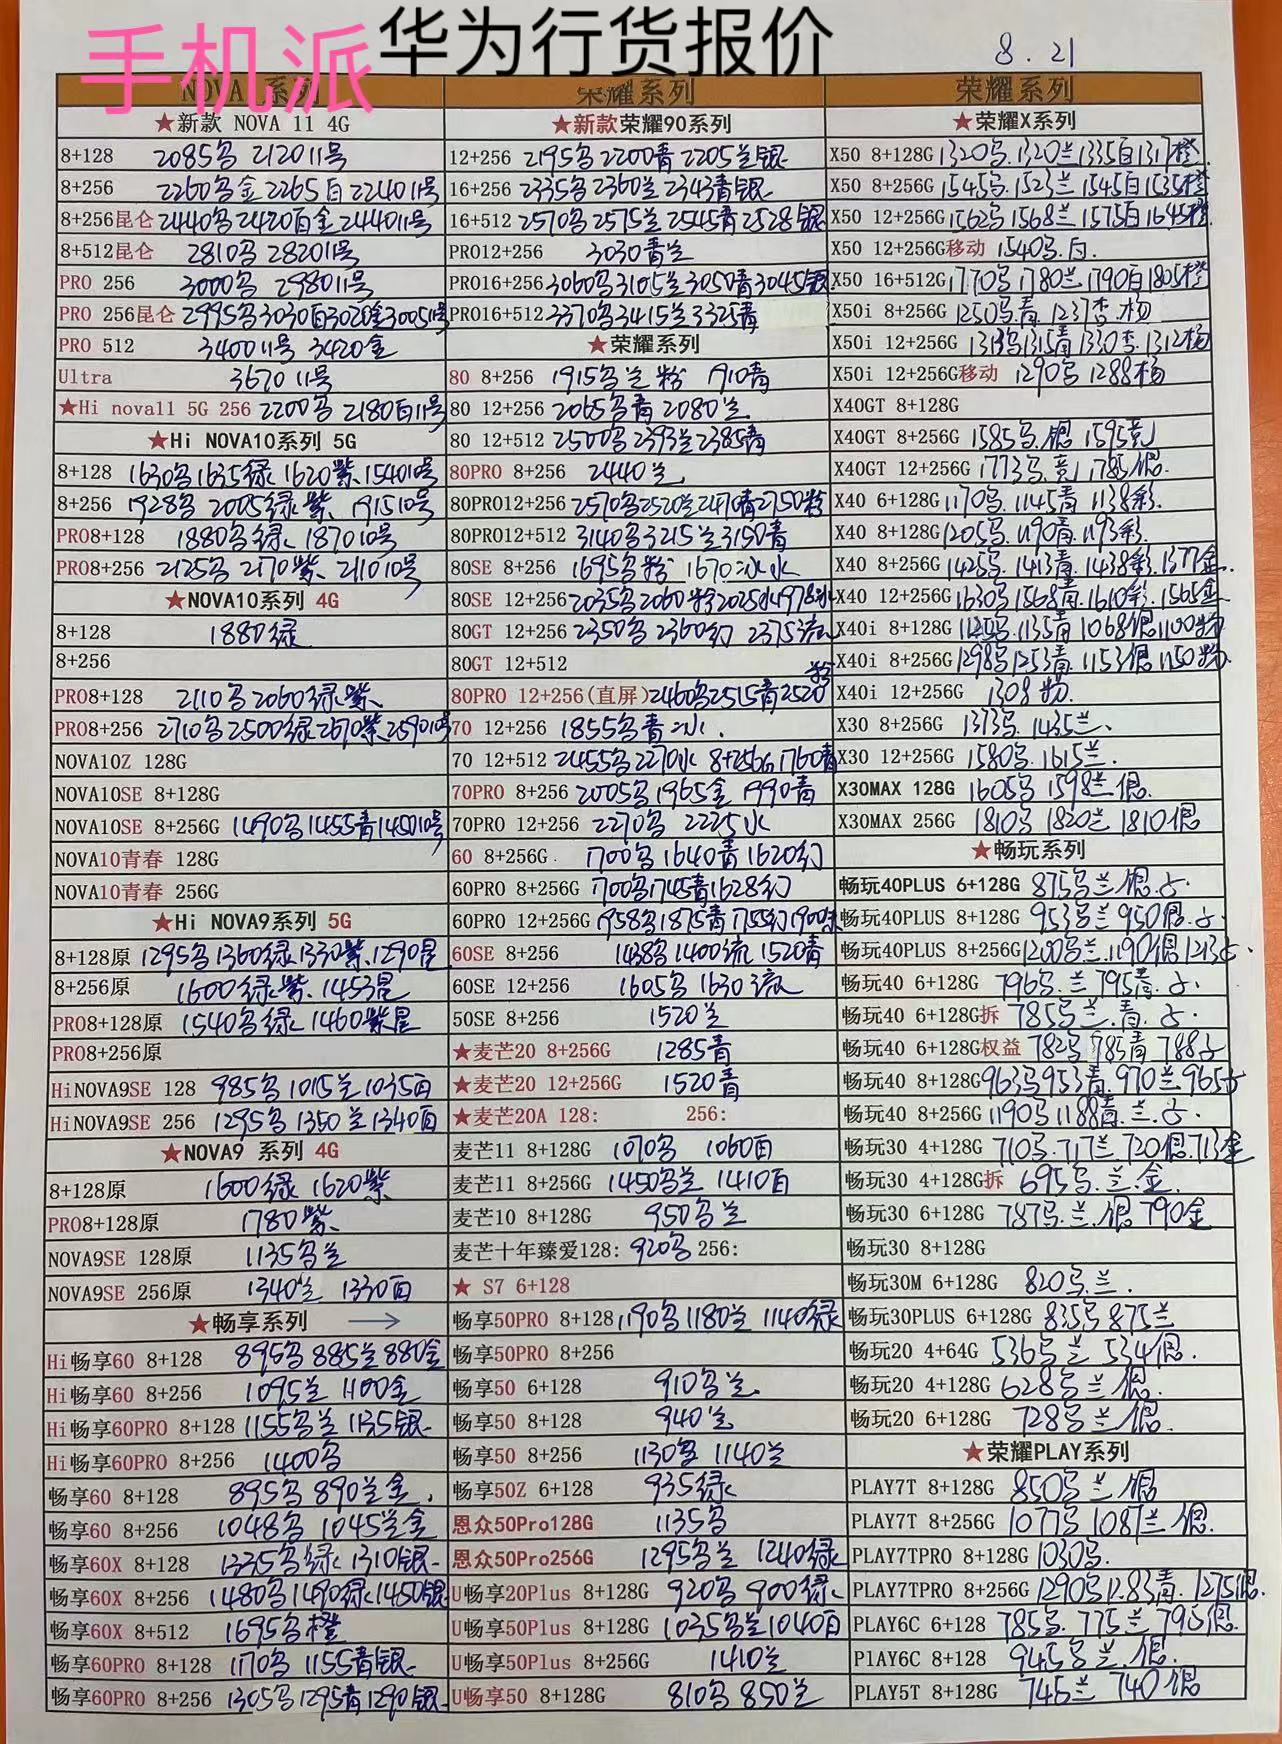 手机派
华为行货报价
8.21
NOVA 系列
★新款 NOVA 11 4G
8+128 2085乌 2120 11号
8+256 2260乌金 2265白 2240 11号
8+256昆仑 2440乌 2420白金 2440 11号
8+512昆仑 2810乌 2820 11号
PRO 256 3000乌 2980 11号
PRO 256昆仑 2995乌 3030白 3020金 3005 11号
PRO 512 3400 11号 3420金
Ultra 3670 11号
★Hi nova11 5G 256 2200乌 2180白 11号
★Hi NOVA10系列 5G
8+128 1630乌 1635绿 1620紫 1540 10号
8+256 1928乌 2005绿紫 1915 10号
PRO8+128 1880乌绿 1870 10号
PRO8+256 2125乌 2170紫 2110 10号
★NOVA10系列 4G
8+128 1880绿
8+256
PRO8+128 2110乌 2060绿紫
PRO8+256 2710乌 2500绿 2670紫 2590 10号
NOVA10Z 128G
NOVA10SE 8+128G
NOVA10SE 8+256G 1490乌 1455青 1450 10号
NOVA10青春 128G
NOVA10青春 256G
★Hi NOVA9系列 5G
8+128原 1295乌 1360绿 1330紫 1290星
8+256原 1600绿紫 1453星
PRO8+128原 1540乌绿 1460紫星
PRO8+256原
HiNOVA9SE 128 985乌 1015兰 1035白
HiNOVA9SE 256 1295乌 1350兰 1340白
★NOVA9 系列 4G
8+128原 1600绿 1620紫
PRO8+128原 1780紫
NOVA9SE 128原 1135乌兰
NOVA9SE 256原 1340兰 1330白
★畅享系列 →
Hi畅享60 8+128 895乌 885兰 880金
Hi畅享60 8+256 1095兰 1100金
Hi畅享60PRO 8+128 1155乌兰 1135银
Hi畅享60PRO 8+256 1400乌
畅享60 8+128 895乌 890兰金
畅享60 8+256 1048乌 1045兰金
畅享60X 8+128 1335乌绿 1310银
畅享60X 8+256 1480乌 1490绿 1450银
畅享60X 8+512 1695乌橙
畅享60PRO 8+128 1170乌 1155青银
畅享60PRO 8+256 1305乌 1295青 1290银
荣耀系列
★新款荣耀90系列
12+256 2195乌 2200青 2205兰银
16+256 2335乌 2360兰 2343青银
16+512 2570乌 2575兰 2545青 2528银
PRO12+256 3030青兰
PRO16+256 3060乌 3105兰 3050青 3045银
PRO16+512 3370乌 3415兰 3325青
★荣耀系列
80 8+256 1915乌兰粉 1910青
80 12+256 2065乌青 2080兰
80 12+512 2500乌 2393兰 2385青
80PRO 8+256 2440兰
80PRO12+256 2570乌 2520兰 2470青 2750粉
80PRO12+512 3140乌 3215兰 3150青
80SE 8+256 1695乌粉 1670冰水
80SE 12+256 2035乌 2060粉 2025水 1978冰
80GT 12+256 2350乌 2360幻 2375流
80GT 12+512
80PRO 12+256(直屏) 2460乌 2515青 2520粉
70 12+256 1855乌青冰.
70 12+512 2455乌 2270水 8+256G 1760青
70PRO 8+256 2005乌 1965金 1990青
70PRO 12+256 2270乌 2225水
60 8+256G. 1700乌 1640青 1620幻
60PRO 8+256G 1700乌 1745青 1628幻
60PRO 12+256G 1958乌 1875青 1755幻 1900绿
60SE 8+256 1438乌 1400流 1520青
60SE 12+256 1605乌 1630流
50SE 8+256 1520兰
★麦芒20 8+256G 1285青
★麦芒20 12+256G 1520青
★麦芒20A 128: 256:
麦芒11 8+128G 1070乌 1060白
麦芒11 8+256G 1450乌兰 1410白
麦芒10 8+128G 950乌兰
麦芒十年臻爱128: 920乌 256:
★ S7 6+128
畅享50PRO 8+128 1190乌 1180兰 1140绿
畅享50PRO 8+256
畅享50 6+128 910乌兰
畅享50 8+128 940兰
畅享50 8+256 1130乌 1140兰
畅享50Z 6+128 935绿
恩众50Pro128G 1135乌
恩众50Pro256G 1295乌兰 1240绿
U畅享20Plus 8+128G 920乌 900绿
U畅享50Plus 8+128G 1035乌兰 1040白
U畅享50Plus 8+256G 1410兰
U畅享50 8+128G 810乌 850兰
荣耀系列
★荣耀X系列
X50 8+128G 1320乌. 1320兰 1335白 1317橙
X50 8+256G 1545乌. 1523兰 1545白 1535橙
X50 12+256G 1562乌 1568兰 1575白 1645橙
X50 12+256G移动 1540乌.白.
X50 16+512G 1770乌 1780兰 1790白 1805橙
X50i 8+256G 1250乌.青. 1237李.杨
X50i 12+256G 1313乌 1315青 1330李. 1312杨
X50i 12+256G移动 1290乌 1288杨
X40GT 8+128G
X40GT 8+256G 1585乌.银 1595竞
X40GT 12+256G 1773乌.竞 1785银.
X40 6+128G 1170乌. 1145青 1138彩.
X40 8+128G 1205乌. 1190青 1193彩.
X40 8+256G 1425乌. 1413青. 1438彩. 1377金.
X40 12+256G 1630乌 1568青. 1610彩. 1565金
X40i 8+128G 1125乌. 1135青 1068银 1100粉
X40i 8+256G 1298乌 1253青. 1153银 1150粉.
X40i 12+256G 1308粉.
X30 8+256G 1373乌. 1435兰.
X30 12+256G 1580乌. 1615兰.
X30MAX 128G 1605乌 1598兰银.
X30MAX 256G 1810乌 1820兰 1810银
★畅玩系列
畅玩40PLUS 6+128G 875乌兰银.
畅玩40PLUS 8+128G 953乌兰 950银.
畅玩40PLUS 8+256G 1200乌兰. 1190银 1213
畅玩40 6+128G 796乌.兰 795青.
畅玩40 6+128G拆 785乌兰.青.
畅玩40 6+128G权益 782乌 785青 788
畅玩40 8+128G 963乌 953青. 970兰 965
畅玩40 8+256G 1190乌 1188青.兰.
畅玩30 4+128G 710乌. 717兰 720银. 713金
畅玩30 4+128G拆 695乌.兰.金.
畅玩30 6+128G 787乌.兰.银 790金
畅玩30 8+128G
畅玩30M 6+128G 820乌兰.
畅玩30PLUS 6+128G 835乌 875兰
畅玩20 4+64G 536乌兰 534银.
畅玩20 4+128G 628乌兰银.
畅玩20 6+128G 728乌兰银.
★荣耀PLAY系列
PLAY7T 8+128G 850乌兰银
PLAY7T 8+256G 1077乌 1087兰银.
PLAY7TPRO 8+128G 1030乌.
PLAY7TPRO 8+256G 1290乌 1283青. 1275银.
PLAY6C 6+128 785乌. 775兰 790银.
PlAY6C 8+128 945乌兰.银.
PLAY5T 8+128G 745兰 740银